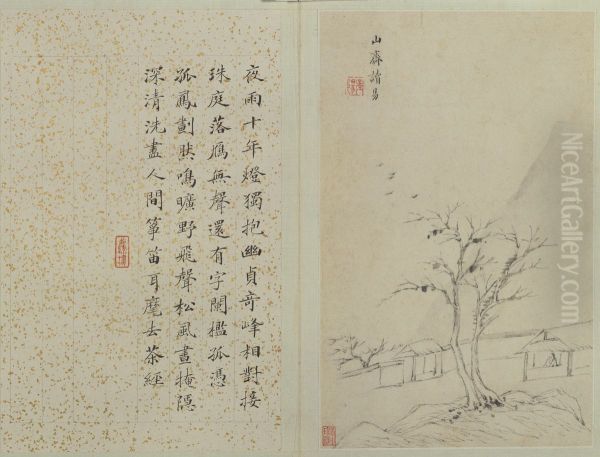 夜雨十年燈獨抱幽貞奇峰相對接
珠庭落鴈無聲還有字闌檻孤憑
孤鳳劃然鳴曠野飛聲松風晝掩隱
深清洗盡人間箏笛耳麾去茶經
山齋讀易
NiceArtGallery.com